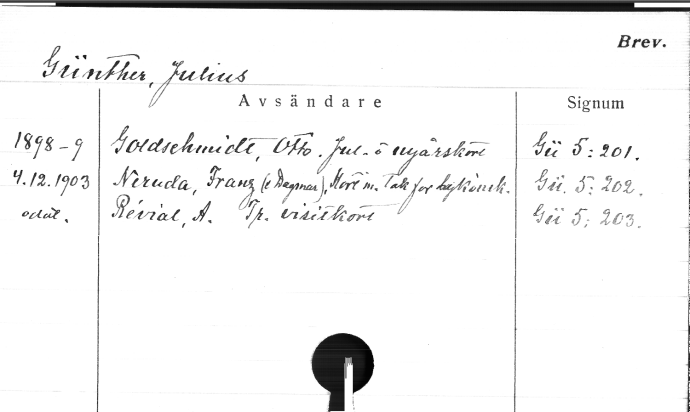 Brev.
Günther, Julius
Avsändare Signum
1898-9 Goldschmidt, Otto. Jul- o nyårskort Gü 5:201.
4.12.1903 Neruda, Franz (o Dagmar), Kort m. Tack för lyckönsk. Gü. 5:202.
odat. Révial, A. Tr. visitkort Gü 5:203.